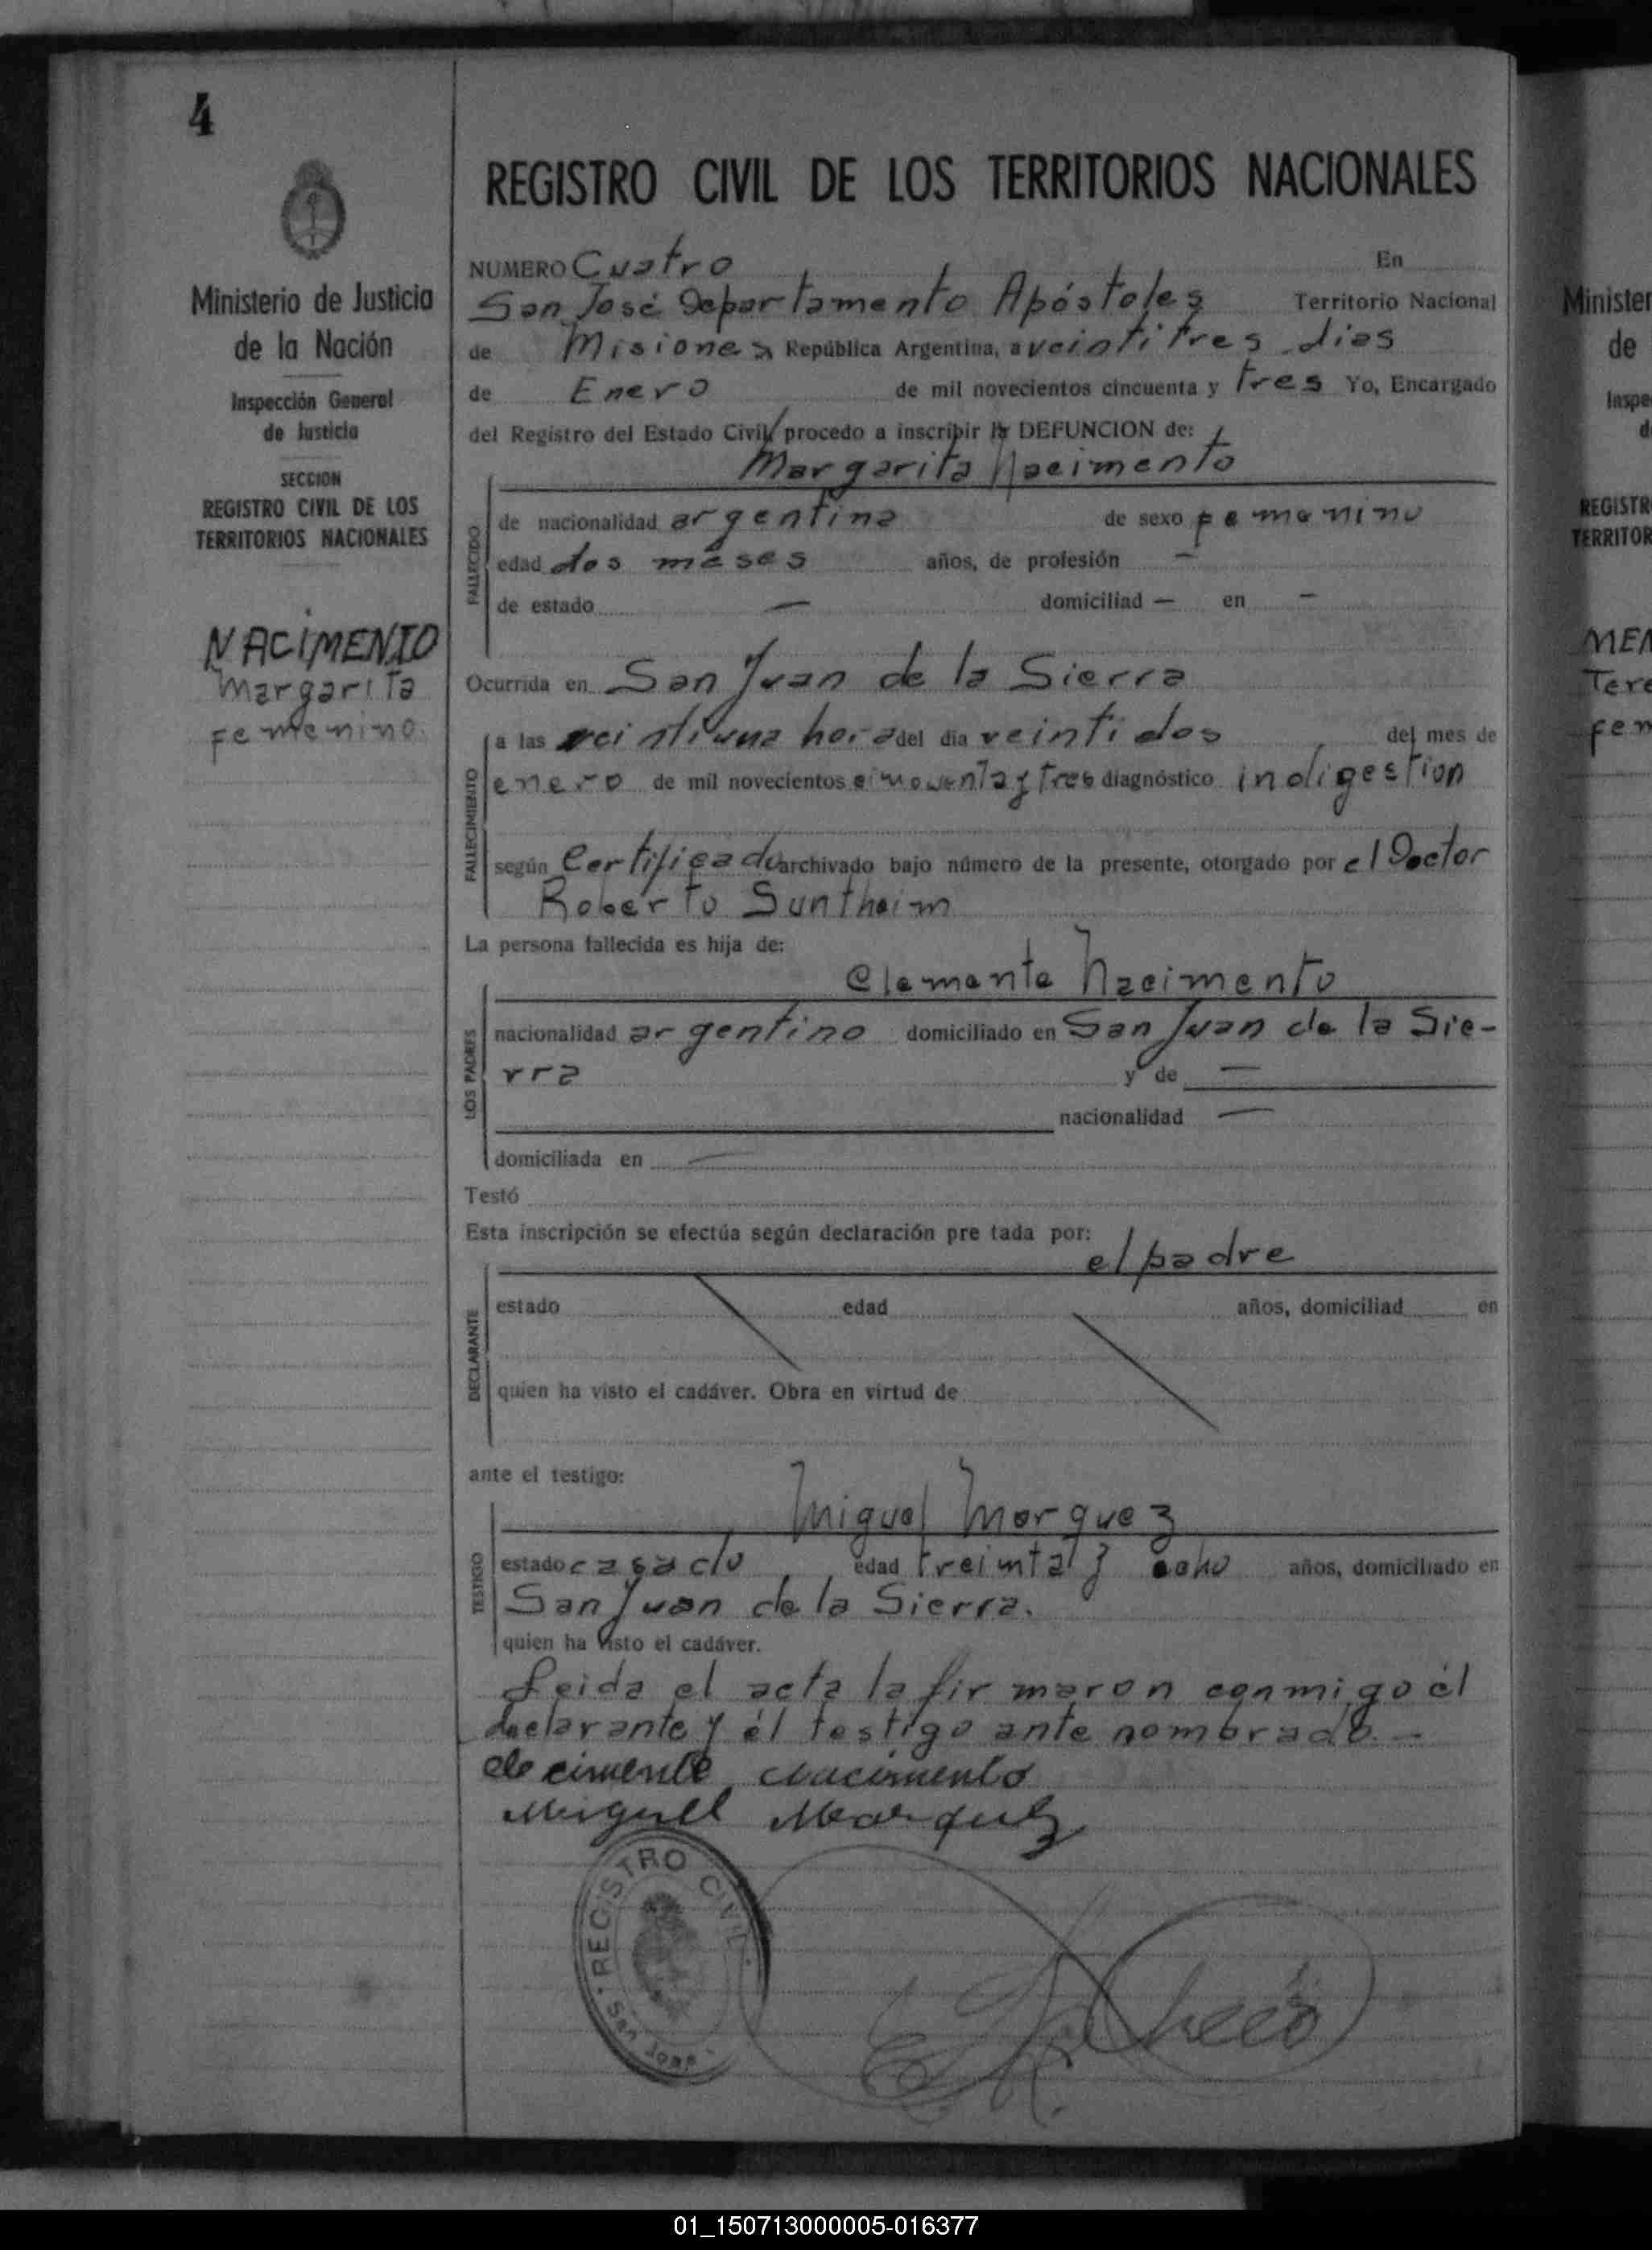 4
Ministerio de Justicia
de la Nación
Inspección General
de Justicia
SECCION
REGISTRO CIVIL DE LOS
TERRITORIOS NACIONALES
NACIMENTO
Margarita
femenino.
REGISTRO CIVIL DE LOS TERRITORIOS NACIONALES
NUMERO Cuatro En
San José Departamento Apóstoles Territorio Nacional
de Misiones República Argentina, a veintitres dias
de Enero de mil novecientos cincuenta y tres Yo, Encargado
del Registro del Estado Civil procedo a inscribir la DEFUNCION de:
Margarita Nacimento
FALLECIDO
de nacionalidad argentina de sexo femenino
edad dos meses años, de profesión —
de estado — domiciliad — en —
Ocurrida en San Juan de la Sierra
FALLECIMIENTO
a las veintiuna hora del dia veinti dos del mes de
enero de mil novecientos cincuenta y tres diagnóstico indigestion
según Certificado archivado bajo número de la presente, otorgado por el Doctor
Roberto Suntheim
La persona fallecida es hija de:
Clemente Nacimento
LOS PADRES
nacionalidad argentino domiciliado en San Juan de la Sie-
rra y de —
nacionalidad —
domiciliada en —
Testó
Esta inscripción se efectúa según declaración pre tada por:
el padre
DECLARANTE
estado edad años, domiciliad en
quien ha visto el cadáver. Obra en virtud de
ante el testigo:
Miguel Marquez
TESTIGO
estado casado edad treinta y ocho años, domiciliado en
San Juan de la Sierra.
quien ha visto el cadáver.
Leida el acta la firmaron conmigo el
declarante y él testigo ante nombrado.—
clecimente Nacimento
Miguell Marquez
REGISTRO CIVIL
San José
Minister
de
Inspe
d
REGISTR
TERRITOR
MEN
Tere
fem
01_150713000005-016377